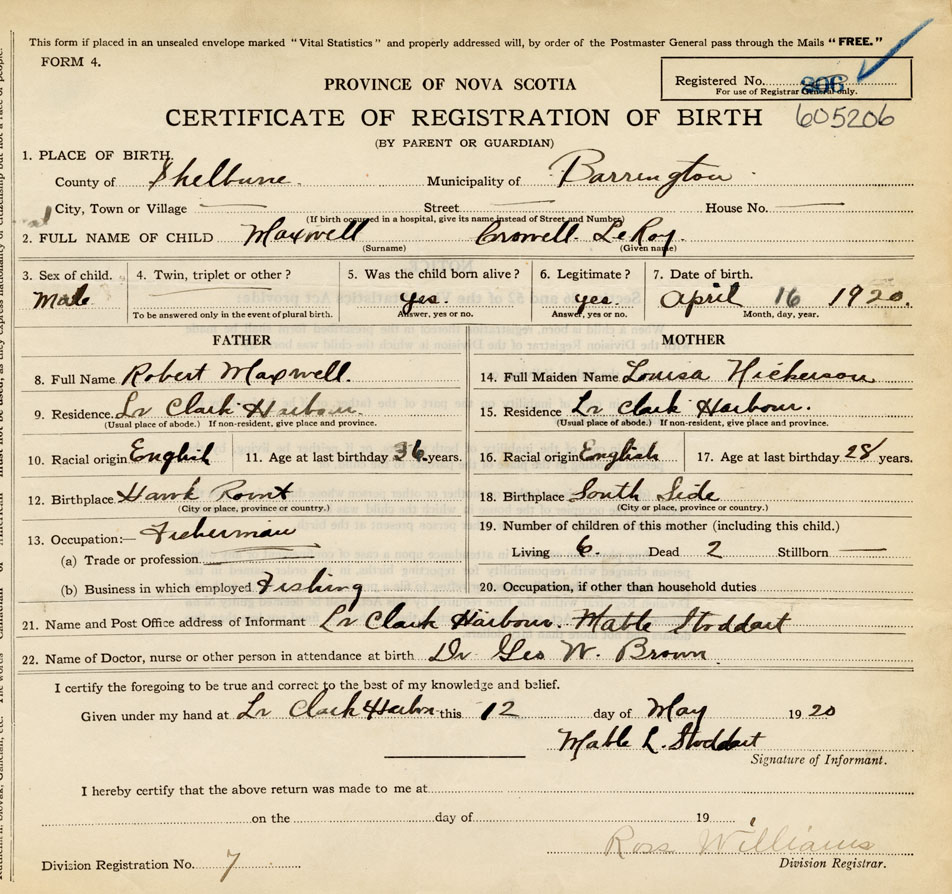 This form if placed in an unsealed envelope marked "Vital Statistics" and properly addressed will, by order of the Postmaster General pass through the Mails "FREE."
FORM 4.
PROVINCE OF NOVA SCOTIA
Registered No. 306
For use of Registrar General only.
CERTIFICATE OF REGISTRATION OF BIRTH 605206
(BY PARENT OR GUARDIAN)
1. PLACE OF BIRTH
County of Shelburne. Municipality of Barrington
City, Town or Village Street House No.
(If birth occurred in a hospital, give its name instead of Street and Number)
2. FULL NAME OF CHILD Maxwell Crowell LeRoy.
(Surname) (Given name)
3. Sex of child. 4. Twin, triplet or other? 5. Was the child born alive? 6. Legitimate? 7. Date of birth.
Male yes. yes. April 16 1920.
To be answered only in the event of plural birth. Answer, yes or no. Answer, yes or no. Month, day, year.
FATHER MOTHER
8. Full Name Robert Maxwell. 14. Full Maiden Name Louisa Nickerson
9. Residence. Lr Clark Harbour. 15. Residence Lr Clark Harbour.
(Usual place of abode.) If non-resident, give place and province. (Usual place of abode.) If non-resident, give place and province.
10. Racial origin English 11. Age at last birthday 36 years. 16. Racial origin English 17. Age at last birthday 28 years.
12. Birthplace Hawk Point 18. Birthplace South Side
(City or place, province or country.) (City or place, province or country.)
13. Occupation:— Fisherman 19. Number of children of this mother (including this child.)
(a) Trade or profession Living 6. Dead 2 Stillborn
(b) Business in which employed Fishing 20. Occupation, if other than household duties
21. Name and Post Office address of Informant Lr Clark Harbour. Mable Stoddart
22. Name of Doctor, nurse or other person in attendance at birth Dr Geo W. Brown
I certify the foregoing to be true and correct to the best of my knowledge and belief.
Given under my hand at Lr Clark Harbor this 12 day of May 1920
Mable L. Stoddart
Signature of Informant.
I hereby certify that the above return was made to me at
on the day of 19
Ross Williams
Division Registration No. 7 Division Registrar.